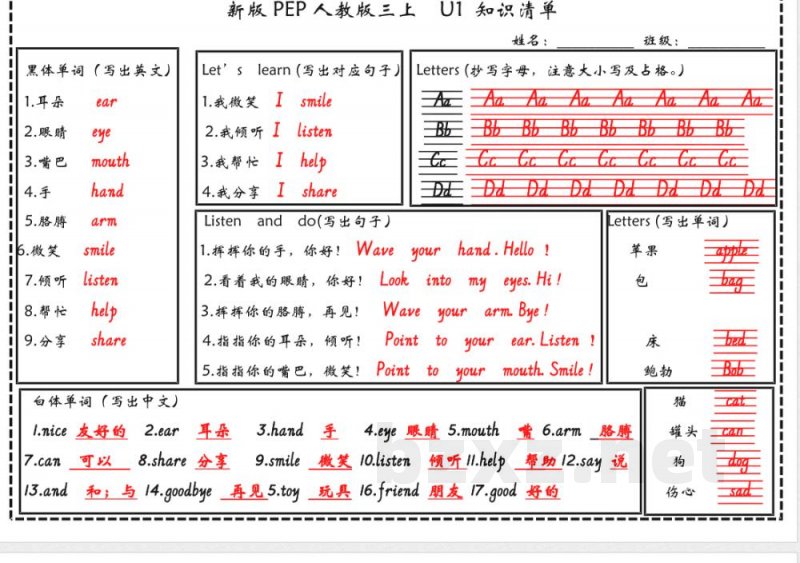 新版 PEP 人教版三上 U1 知识清单
姓名： 班级：
黑体单词（写出英文）
1.耳朵 ear
2.眼睛 eye
3.嘴巴 mouth
4.手 hand
5.胳膊 arm
6.微笑 smile
7.倾听 listen
8.帮忙 help
9.分享 share
Let's learn (写出对应句子)
1.我微笑 I smile
2.我倾听 I listen
3.我帮忙 I help
4.我分享 I share
Letters (抄写字母，注意大小写及占格。)
Aa Aa Aa Aa Aa Aa Aa Aa
Bb Bb Bb Bb Bb Bb Bb Bb
Cc Cc Cc Cc Cc Cc Cc Cc
Dd Dd Dd Dd Dd Dd Dd Dd
Listen and do(写出句子)
1.挥挥你的手，你好！ Wave your hand. Hello !
2.看着我的眼睛，你好！ Look into my eyes. Hi !
3.挥挥你的胳膊，再见！ Wave your arm. Bye !
4.指指你的耳朵，倾听！ Point to your ear. Listen !
5.指指你的嘴巴，微笑！ Point to your mouth. Smile !
Letters (写出单词)
苹果 apple
包 bag
床 bed
鲍勃 Bob
猫 cat
罐头 can
狗 dog
伤心 sad
白体单词（写出中文）
1.nice 友好的 2.ear 耳朵 3.hand 手 4.eye 眼睛 5.mouth 嘴 6.arm 胳膊
7.can 可以 8.share 分享 9.smile 微笑 10.listen 倾听 11.help 帮助 12.say 说
13.and 和；与 14.goodbye 再见 5.toy 玩具 16.friend 朋友 17.good 好的